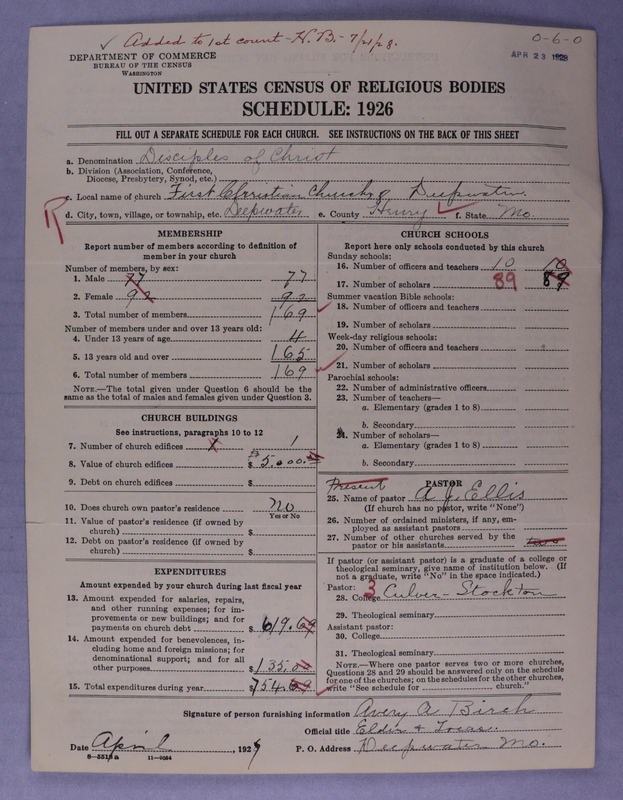 ✓ Added to 1st count - H.B. - 7/21/28.
0-6-0
DEPARTMENT OF COMMERCE
BUREAU OF THE CENSUS
WASHINGTON
APR 23 1928
UNITED STATES CENSUS OF RELIGIOUS BODIES
SCHEDULE: 1926
FILL OUT A SEPARATE SCHEDULE FOR EACH CHURCH. SEE INSTRUCTIONS ON THE BACK OF THIS SHEET
a. Denomination Disciples of Christ
b. Division (Association, Conference,
Diocese, Presbytery, Synod, etc.)
c. Local name of church First Christian Church of Deepwater
R
d. City, town, village, or township, etc. Deepwater e. County Henry ✓ f. State Mo.
MEMBERSHIP
Report number of members according to definition of
member in your church
Number of members, by sex:
1. Male 77 77
2. Female 92 92
3. Total number of members 169 ✓
Number of members under and over 13 years old:
4. Under 13 years of age 4
5. 13 years old and over 165
6. Total number of members 169 ✓
NOTE.—The total given under Question 6 should be the
same as the total of males and females given under Question 3.
CHURCH BUILDINGS
See instructions, paragraphs 10 to 12
7. Number of church edifices X 1
8. Value of church edifices $ 5.000.
9. Debt on church edifices $
10. Does church own pastor's residence No
Yes or No
11. Value of pastor's residence (if owned by
church) $
12. Debt on pastor's residence (if owned by
church) $
EXPENDITURES
Amount expended by your church during last fiscal year
13. Amount expended for salaries, repairs,
and other running expenses; for im-
provements or new buildings; and for
payments on church debt $ 619.69
14. Amount expended for benevolences, in-
cluding home and foreign missions; for
denominational support; and for all
other purposes $ 135.00
15. Total expenditures during year $ 754.69 ✓
CHURCH SCHOOLS
Report here only schools conducted by this church
Sunday schools:
16. Number of officers and teachers 10 10
17. Number of scholars 89 89
Summer vacation Bible schools:
18. Number of officers and teachers
19. Number of scholars
Week-day religious schools:
20. Number of officers and teachers
21. Number of scholars
Parochial schools:
22. Number of administrative officers
23. Number of teachers—
a. Elementary (grades 1 to 8)
b. Secondary
24. Number of scholars—
a. Elementary (grades 1 to 8)
b. Secondary
Present PASTOR
25. Name of pastor A J. Ellis
(If church has no pastor, write "None")
26. Number of ordained ministers, if any, em-
ployed as assistant pastors
27. Number of other churches served by the
pastor or his assistants
If pastor (or assistant pastor) is a graduate of a college or
theological seminary, give name of institution below. (If
not a graduate, write "No" in the space indicated.)
Pastor: 3
28. College Culver-Stockton
29. Theological seminary
Assistant pastor:
30. College
31. Theological seminary
NOTE.—Where one pastor serves two or more churches,
Questions 28 and 29 should be answered only on the schedule
for one of the churches; on the schedules for the other churches,
write "See schedule for church."
Signature of person furnishing information Avery A Birch
Official title Elder & Treas.
Date April, 192 P. O. Address Deepwater Mo.
8—5518a 11—9054